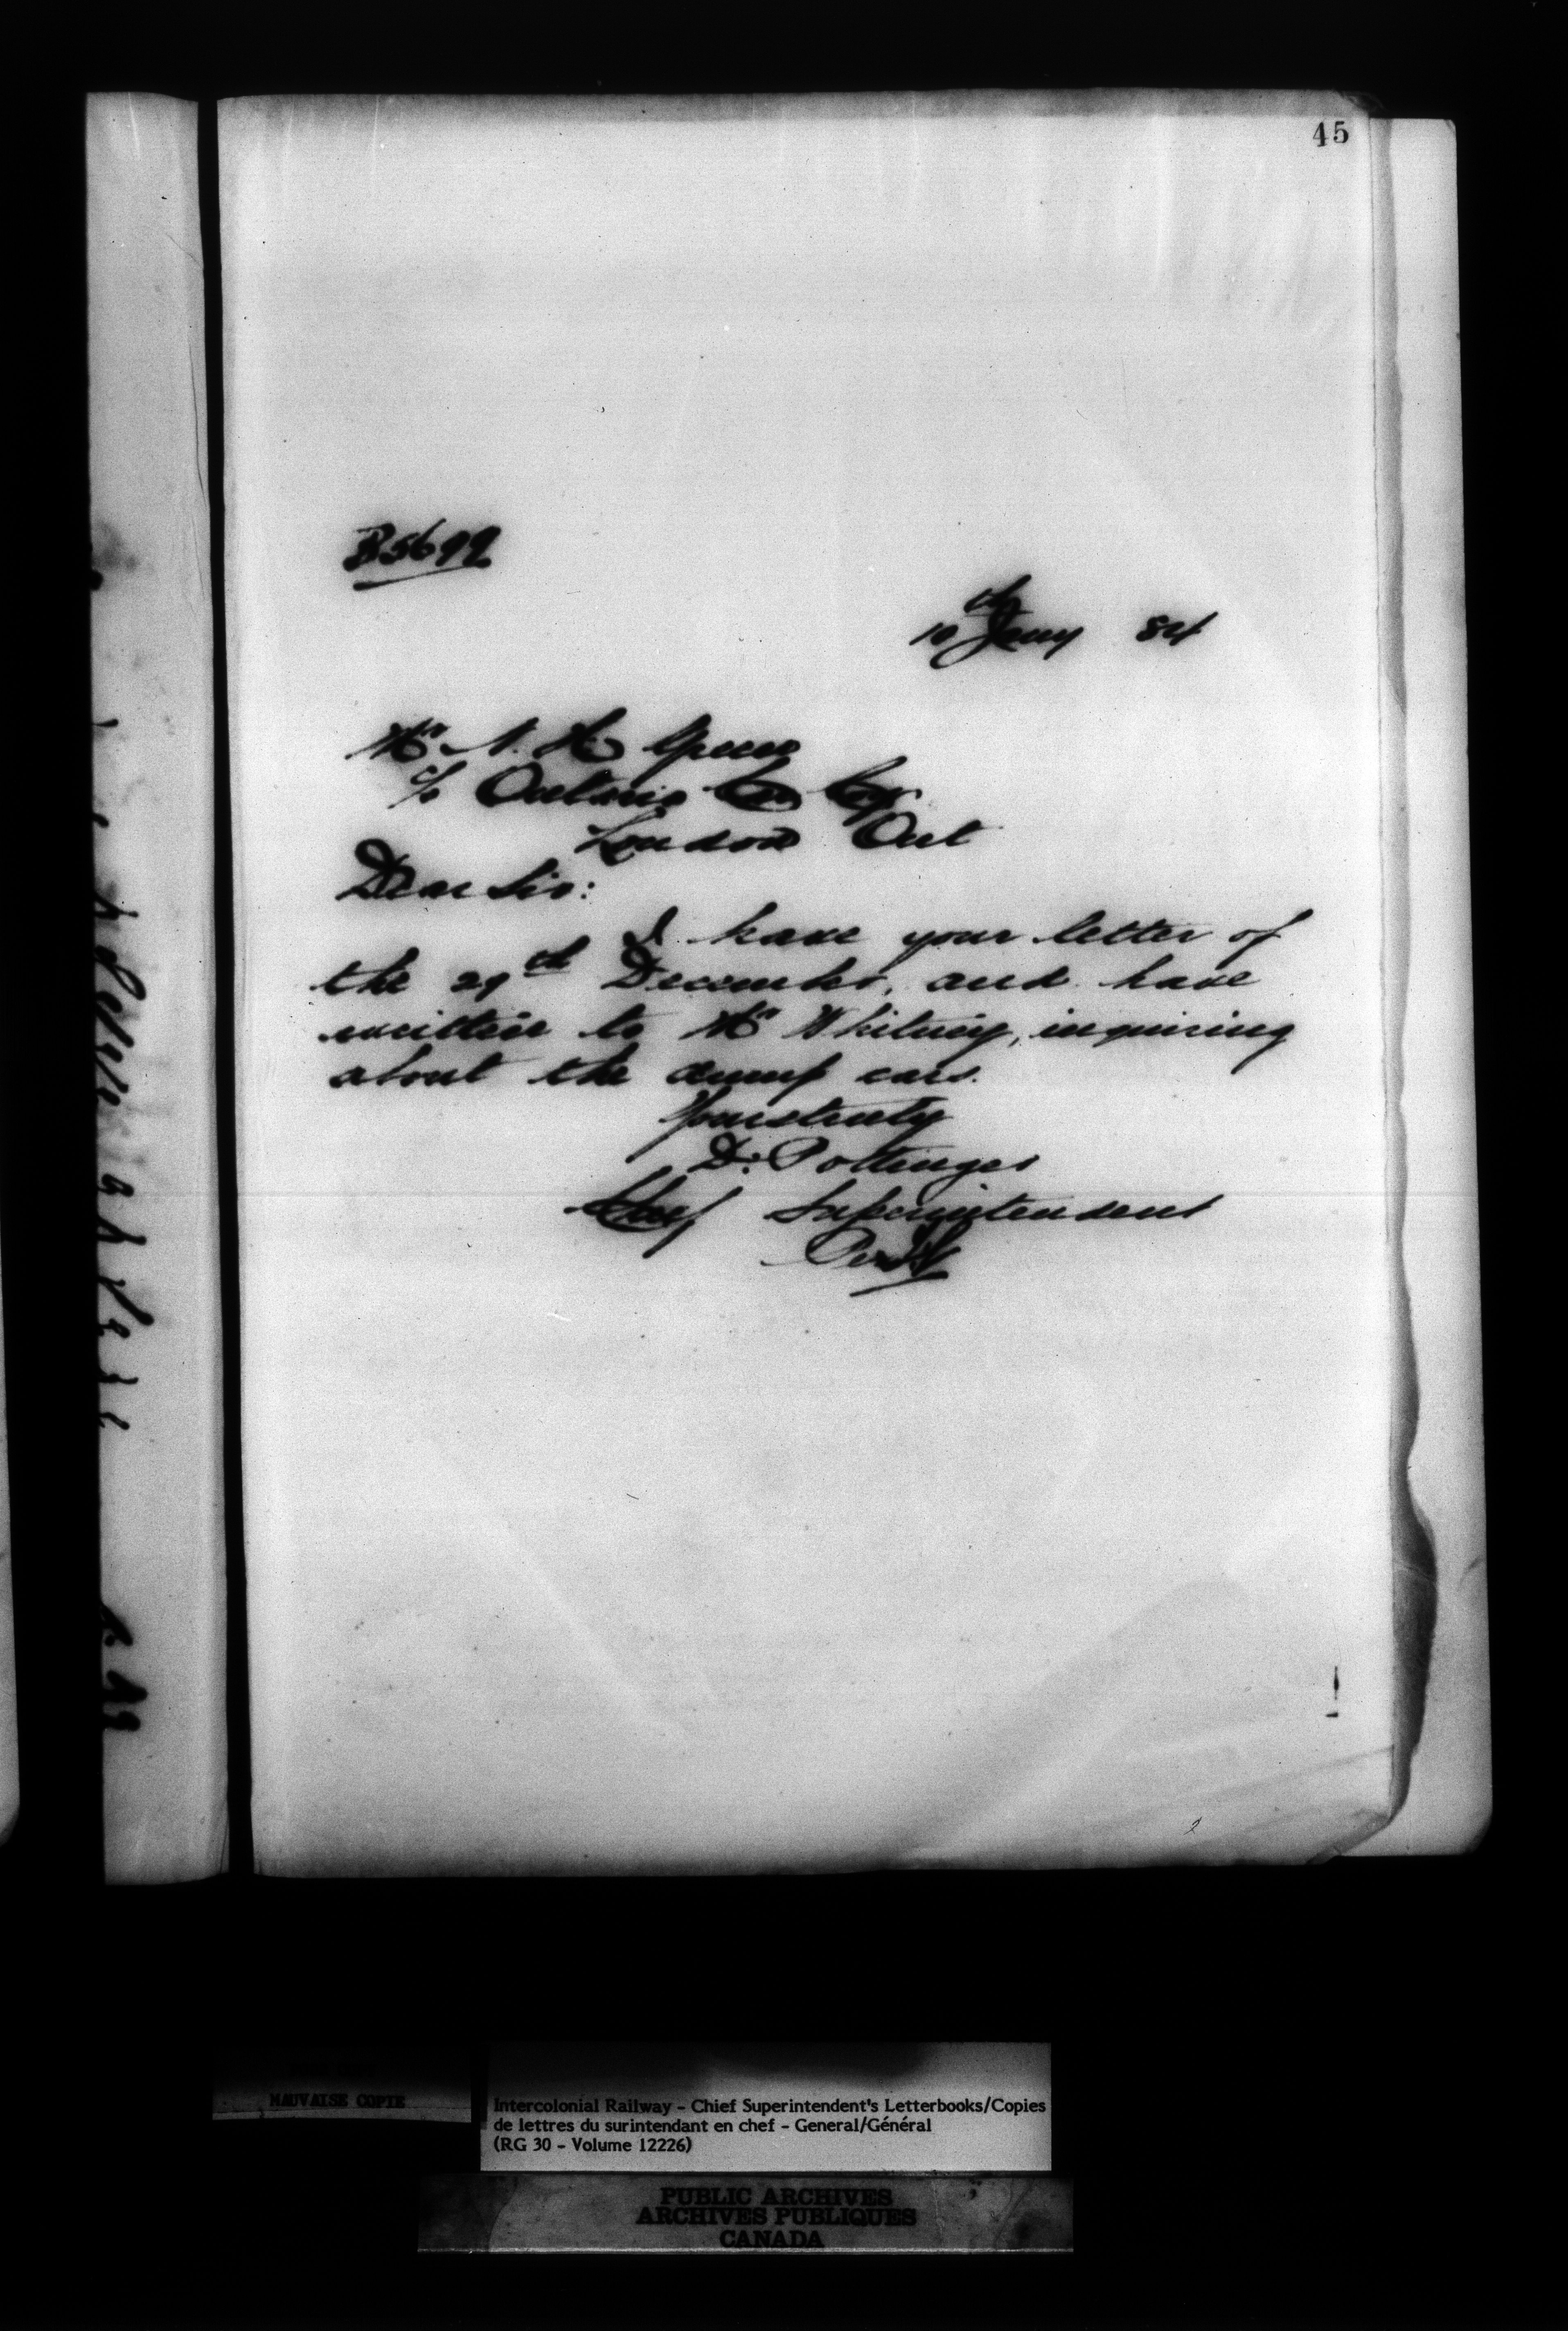 45
B5699
10th Jany 84
Mr N. H.
c/o Ontario Car Coy
London Ont
Dear Sir:
I have your letter of
the 29th December, and have
written to Mr Whitney, inquiring
about the dump cars.
Yours truly
D. Pottinger
Chief Superintendent
Per
MAUVAISE COPIE
Intercolonial Railway - Chief Superintendent's Letterbooks/Copies
de lettres du surintendant en chef - General/Général
(RG 30 - Volume 12226)
PUBLIC ARCHIVES
ARCHIVES PUBLIQUES
CANADA